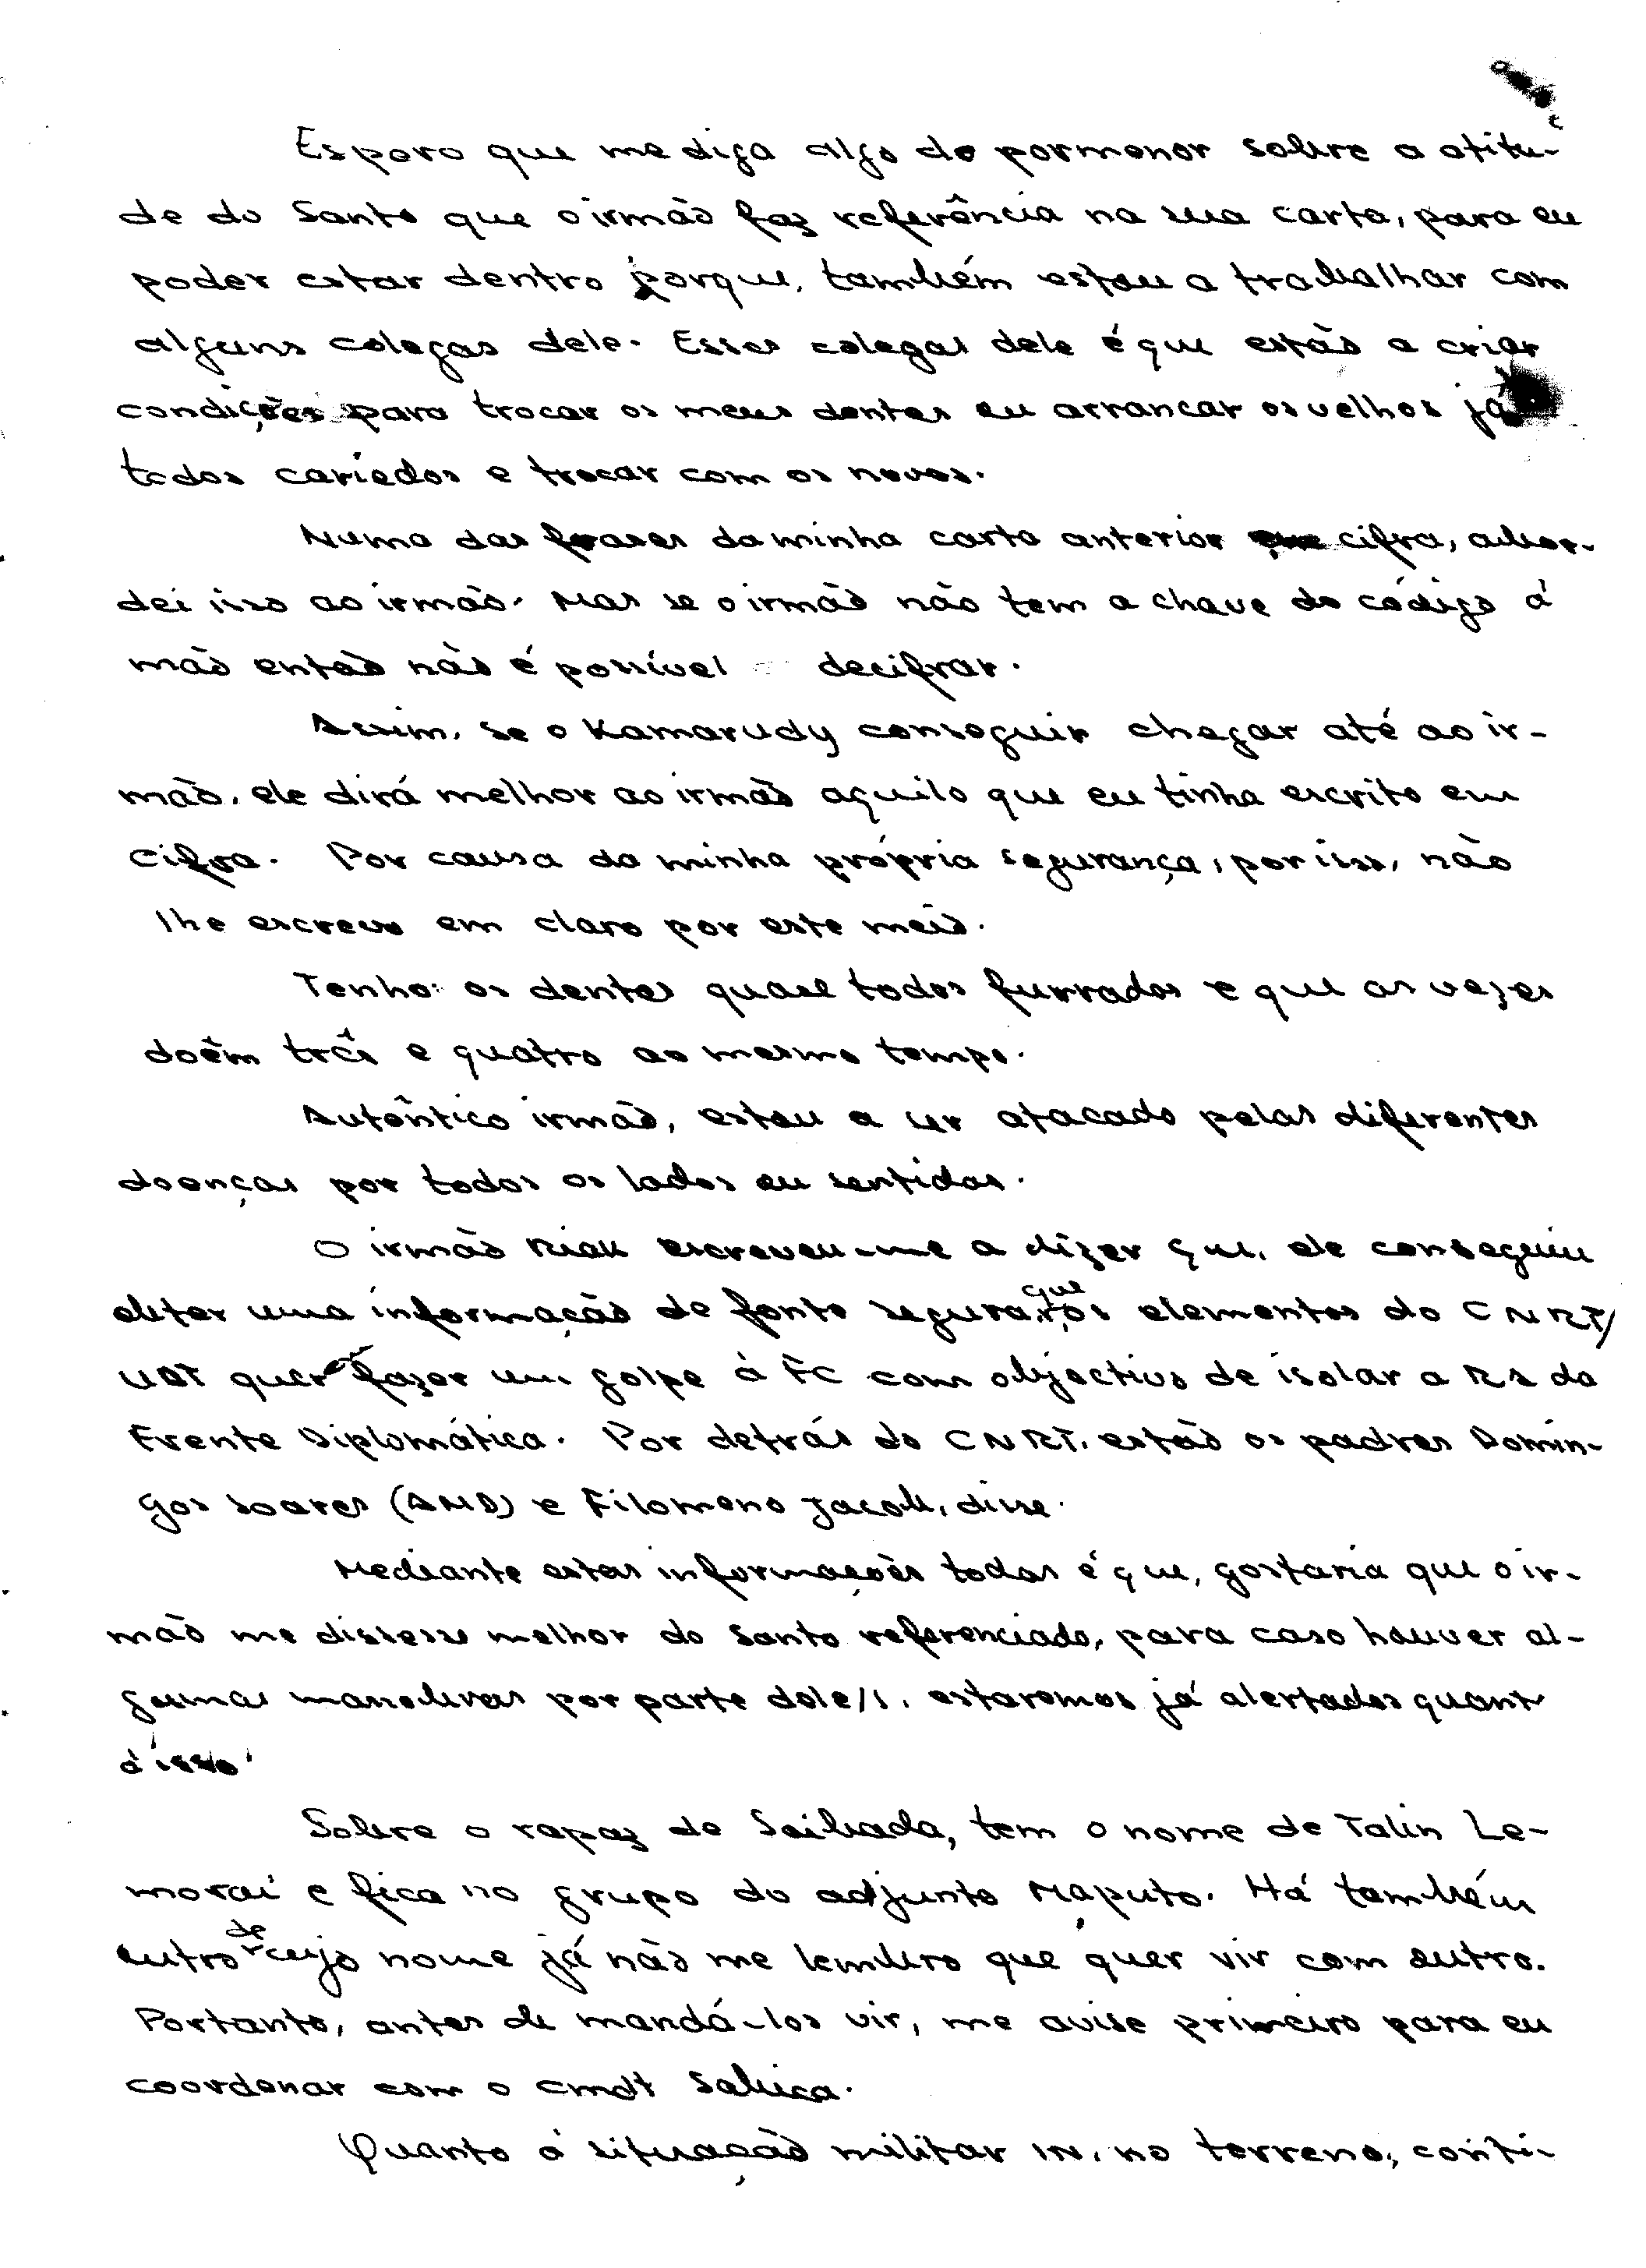 Espero que me diga algo de pormenor sobre a atitu-
de do Santo que o irmão faz referência na sua carta, para eu
poder estar dentro porque, também estou a trabalhar com
alguns colegas dele. Esses colegas dele é que estão a criar
condições para trocar os meus dentes ou arrancar os velhos já
todos cariados e trocar com os novos.
Numa das frases da minha carta anterior cifra, abor-
dei isso ao irmão. Mas se o irmão não tem a chave do código á
mão então não é possível decifrar.
Assim, se o Kamarudy conseguir chegar até ao ir-
mão, ele dirá melhor ao irmão aquilo que eu tinha escrito em
cifra. Por causa da minha própria segurança, por isso, não
lhe escrevo em claro por este meio.
Tenho os dentes quase todos furrados e que as vezes
doêm três e quatro ao mesmo tempo.
Autêntico irmão, estou a ser atacado pelas diferentes
doenças por todos os lados ou sentidos.
O irmão Riak escreveu-me a dizer que, ele conseguiu
obter uma informação de fonte segura, que os elementos do CNRT/
UDT quer fazer um golpe à FC com objectivo de isolar a RA da
Frente Diplomática. Por detrás do CNRT, estão os padres Domin-
gos Soares (AMD) e Filomeno Jacob, disse.
Mediante estas informações todas é que, gostaria que o ir-
mão me dissesse melhor do Santo referenciado, para caso houver al-
gumas manobras por parte dele/s, estaremos já alertados quant
à isso.
Sobre o rapaz de Soibada, tem o nome de Talin Le-
morai e fica no grupo do adjunto Maputo. Há também
outro de cujo nome já não me lembro que quer vir com outro.
Portanto, antes de mandá-los vir, me avise primeiro para eu
coordenar com o cmdt Sabica.
Quanto á situação militar IN, no terreno, conti-